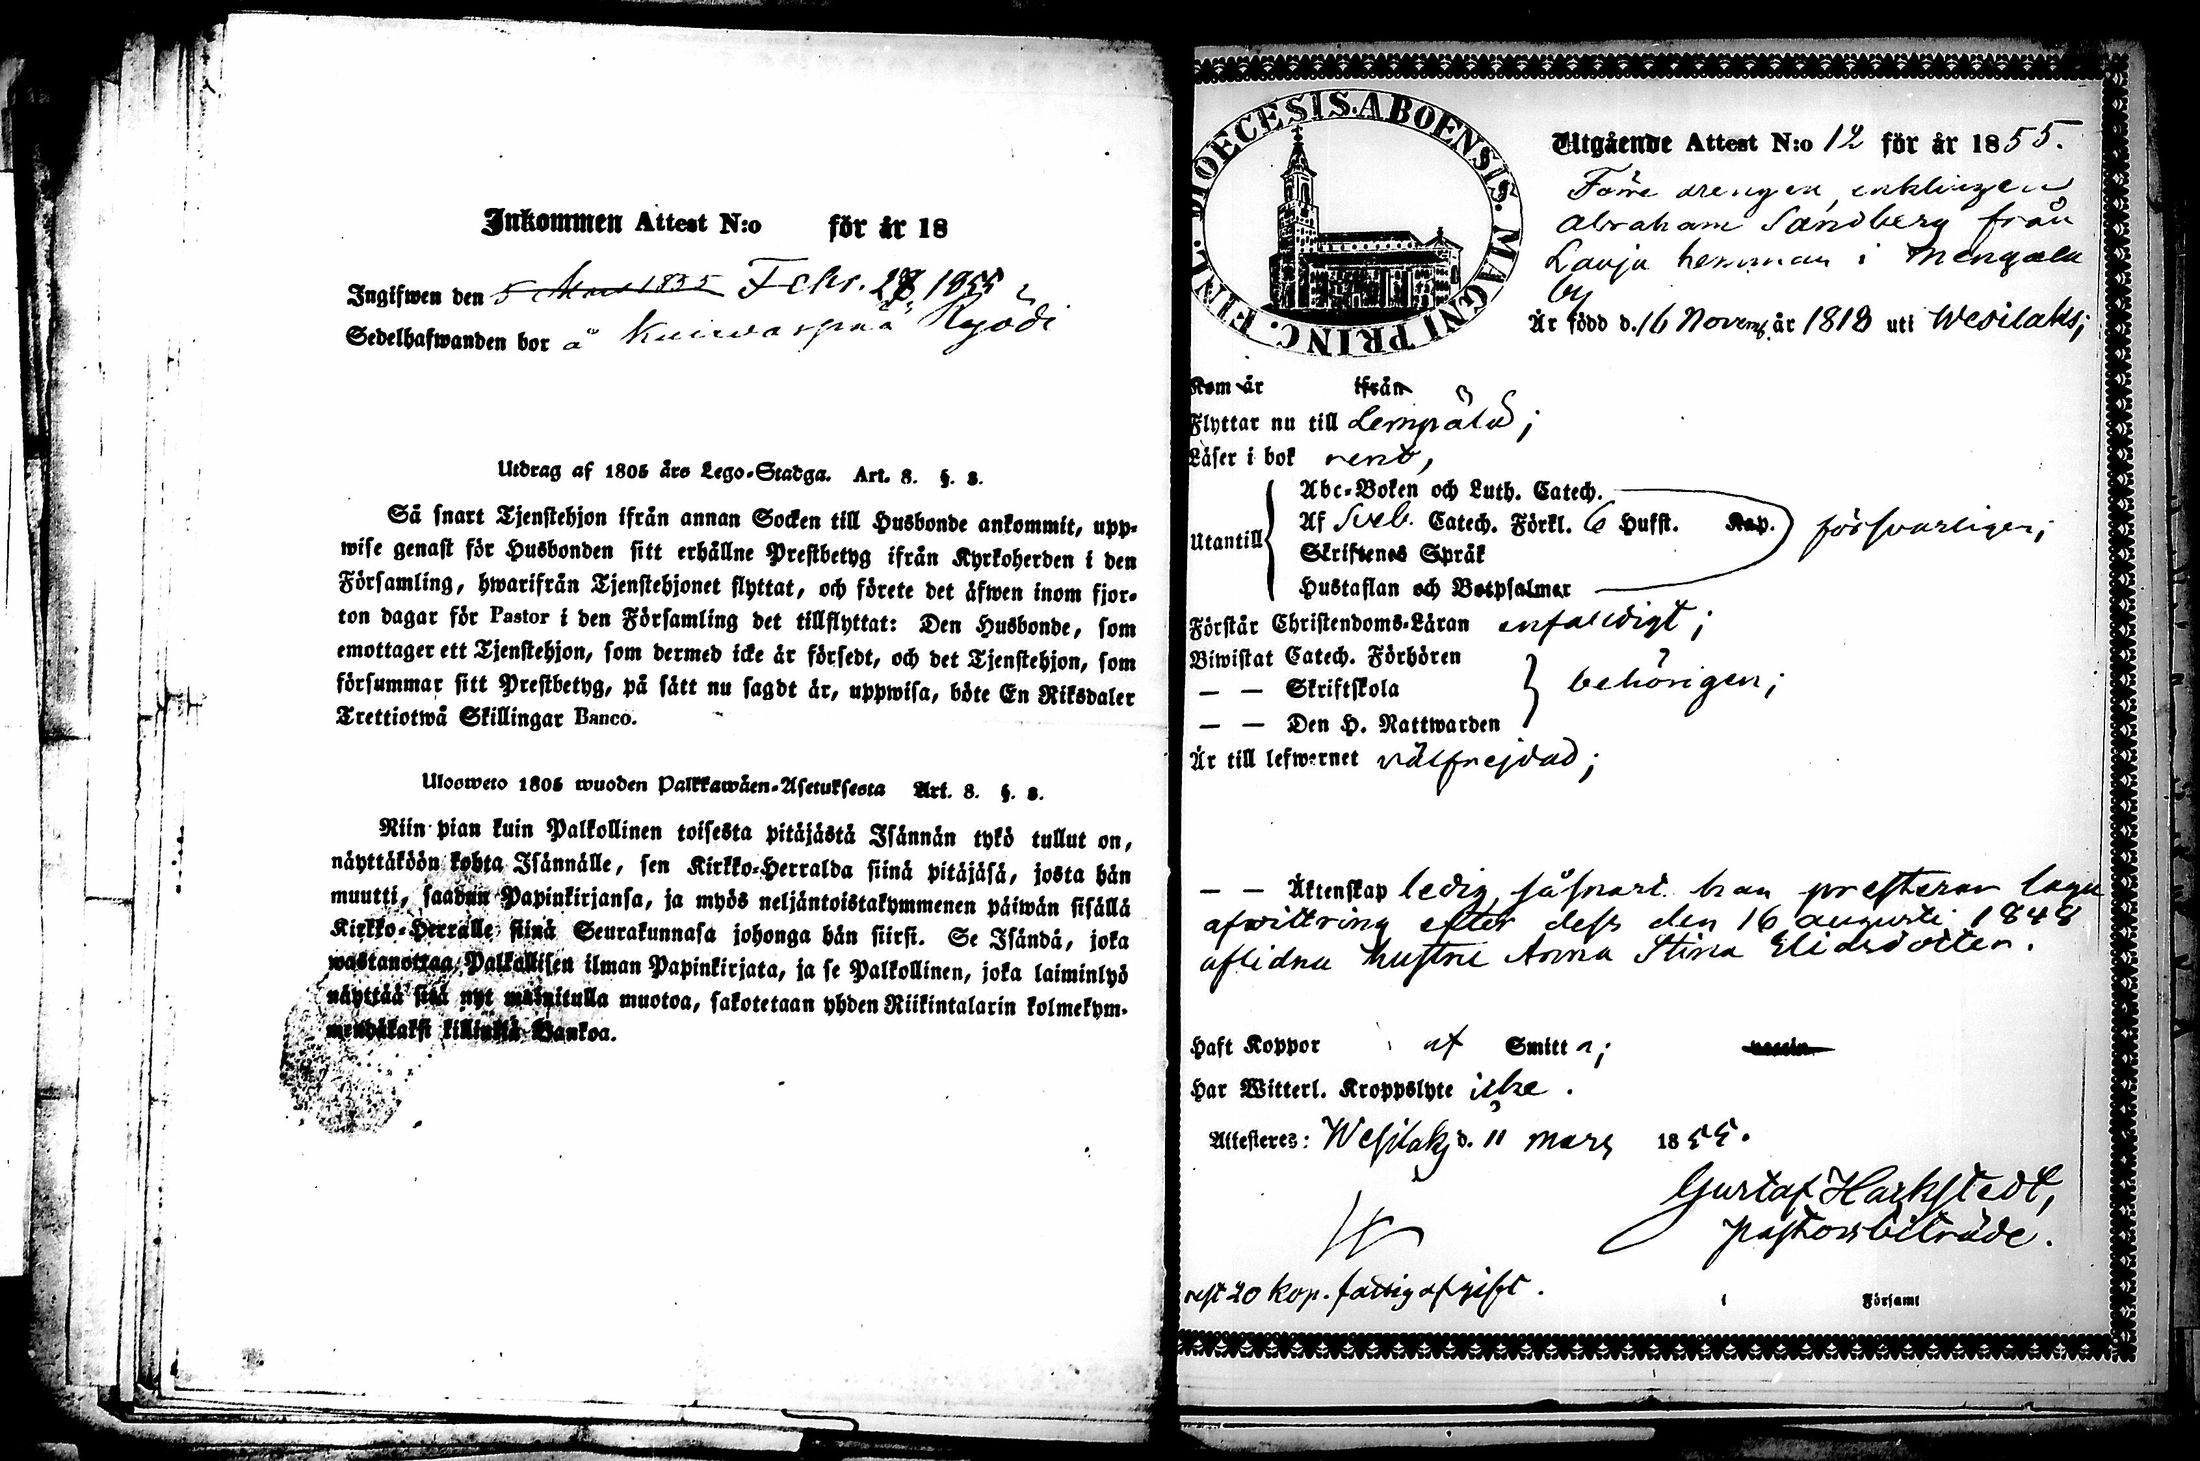 Inkommen Attest N:o för år 18
Ingifwen den 5 Mars 1855 Febr. 28 1855
Sedelhafwanden bor å Kuirwaspää Ryödi
Utdrag af 1805 års Lego-Stadga. Art. 8. §. 8.
Så snart Tjenstehjon ifrån annan Socken till Husbonde ankommit, upp-
wise genast för Husbonden sitt erhållne Prestbetyg ifrån Kyrkoherden i den
Församling, hwarifrån Tjenstehjonet flyttat, och förete det äfwen inom fjor-
ton dagar för Pastor i den Församling det tillflyttat: Den Husbonde, som
emottager ett Tjenstehjon, som dermed icke är försedt, och det Tjenstehjon, som
försummar sitt Prestbetyg, på sätt nu sagdt är, uppwisa, böte En Riksdaler
Trettiotwå Skillingar Banco.
Ulosweto 1805 wuoden Palkkawäen-Asetuksesta Art. 8. §. 8.
Niin pian kuin Palkollinen toisesta pitäjästä Isännän tykö tullut on,
näyttäköön kohta Isännälle, sen Kirkko-Herralda siinä pitäjäsä, josta hän
muutti, saadun Papinkirjansa, ja myös neljäntoistakymmenen päiwän sisällä
Kirkko-Herralle siinä Seurakunnasa johonga hän siirsi. Se Isändä, joka
wastanottaa Palkallisen ilman Papinkirjata, ja se Palkollinen, joka laiminlyö
näyttää sitä nyt mainitulla muotoa, sakotetaan yhden Riikintalarin kolmekym-
mendäkaksi killinkiä Bankoa.
DIOECESIS. ABOENSIS. MAGNI PRINC. FINL.
Utgående Attest N:o 12 för år 1855.
Förre drengen, enklingen
Abraham Sandberg från
Lauju hemman i Mengälä
by
Är född d. 16 Novemb. år 1818 uti Wesilaks;
Kom år ifrån
Flyttar nu till Lempälä;
Läser i bok rent,
Abc-Boken och Luth. Catech.
Utantill Af Sveb. Catech. Förkl. 6 Hufst. Kap. försvarligen;
Skriftenes Språk
Hustaflan och Botpsalmer
Förstår Christendoms-Läran enfaldigt;
Biwistat Catech. Förhören
— — Skriftskola behörigen;
— — Den H. Nattwarden
Är till lefwernet välfrejdad;
— — Äktenskap ledig, såsnart han presterar laga
afwittring efter dess den 16 augusti 1848
aflidna hustru Anna Stina Eliedotter.
Haft Koppor af Smitta;
Har Witterl. Kroppslyte icke.
Attesteres: Wesilaks d. 11 mars 1855.
Gustaf Hackstedt,
pastorsbiträde.
rest 20 kop. fattigafgift.
i Församl